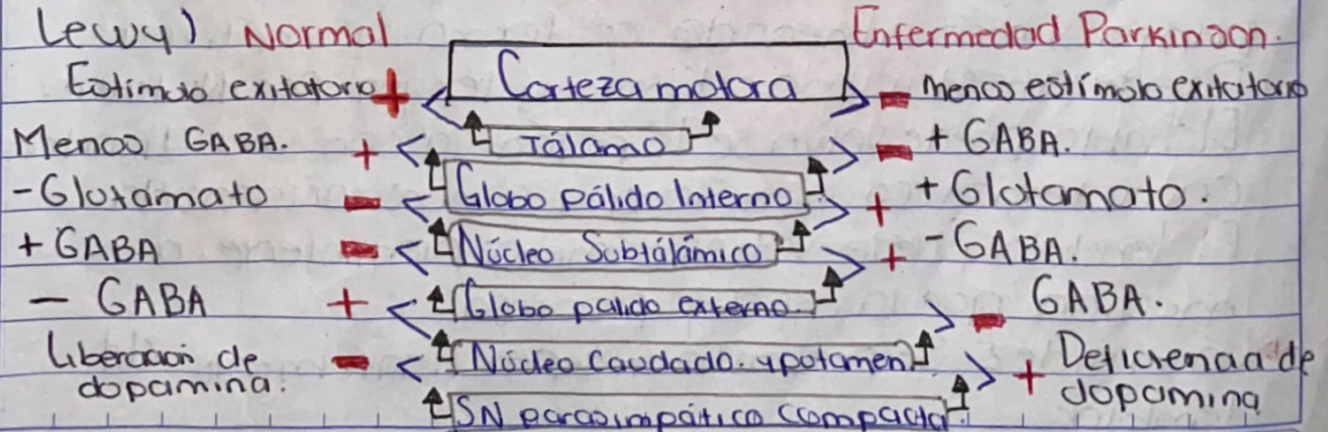 Lewy) Normal Enfermedad Parkinson.
Estimulo exitatorio + Corteza motora - menos estímulo exitatorio
Menos GABA. + Tálamo - + GABA.
- Glutamato - Globo pálido Interno + + Glutamato.
+ GABA - Núcleo Subtálámico + - GABA.
- GABA + Globo palido externo. - GABA.
Liberación de dopamina. - Núcleo Caudado. y putamen + Deficiencia de dopamina
SN parasimpático (compacta).